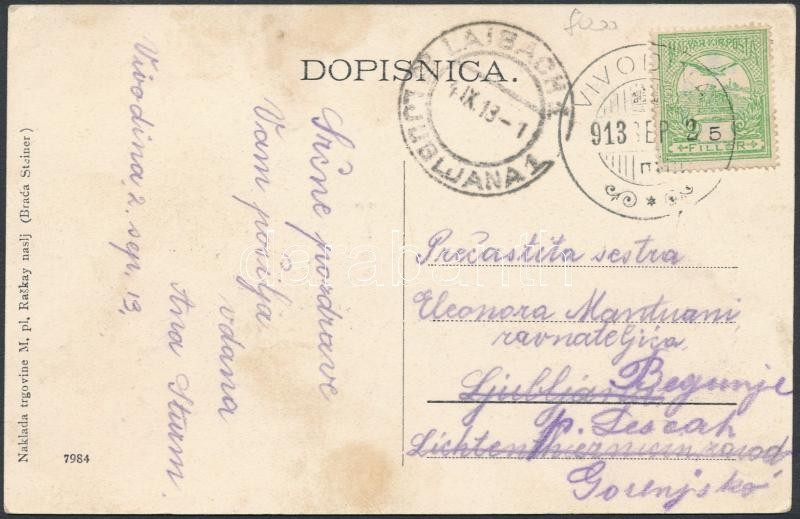 DOPISNICA.
LAIBACH 1
4.IX.13-1
LJUBLJANA 1
VIVODINA
913 SEP 2
MAGYAR KIR. POSTA
5
FILLÉR
Vivodina, 2. sep. 13.
Srčne pozdrave
Vam pošilja
vdana
Ana Sturm.
Prečastita sestra
Eleonora Mantuani
ravnateljica
Ljubljana Begunje
p. Lescah
Lichtenthurnov zavod
Gorenjsko
Naklada trgovine M. pl. Raškay naslj (Braća Steiner)
7984
darabanth